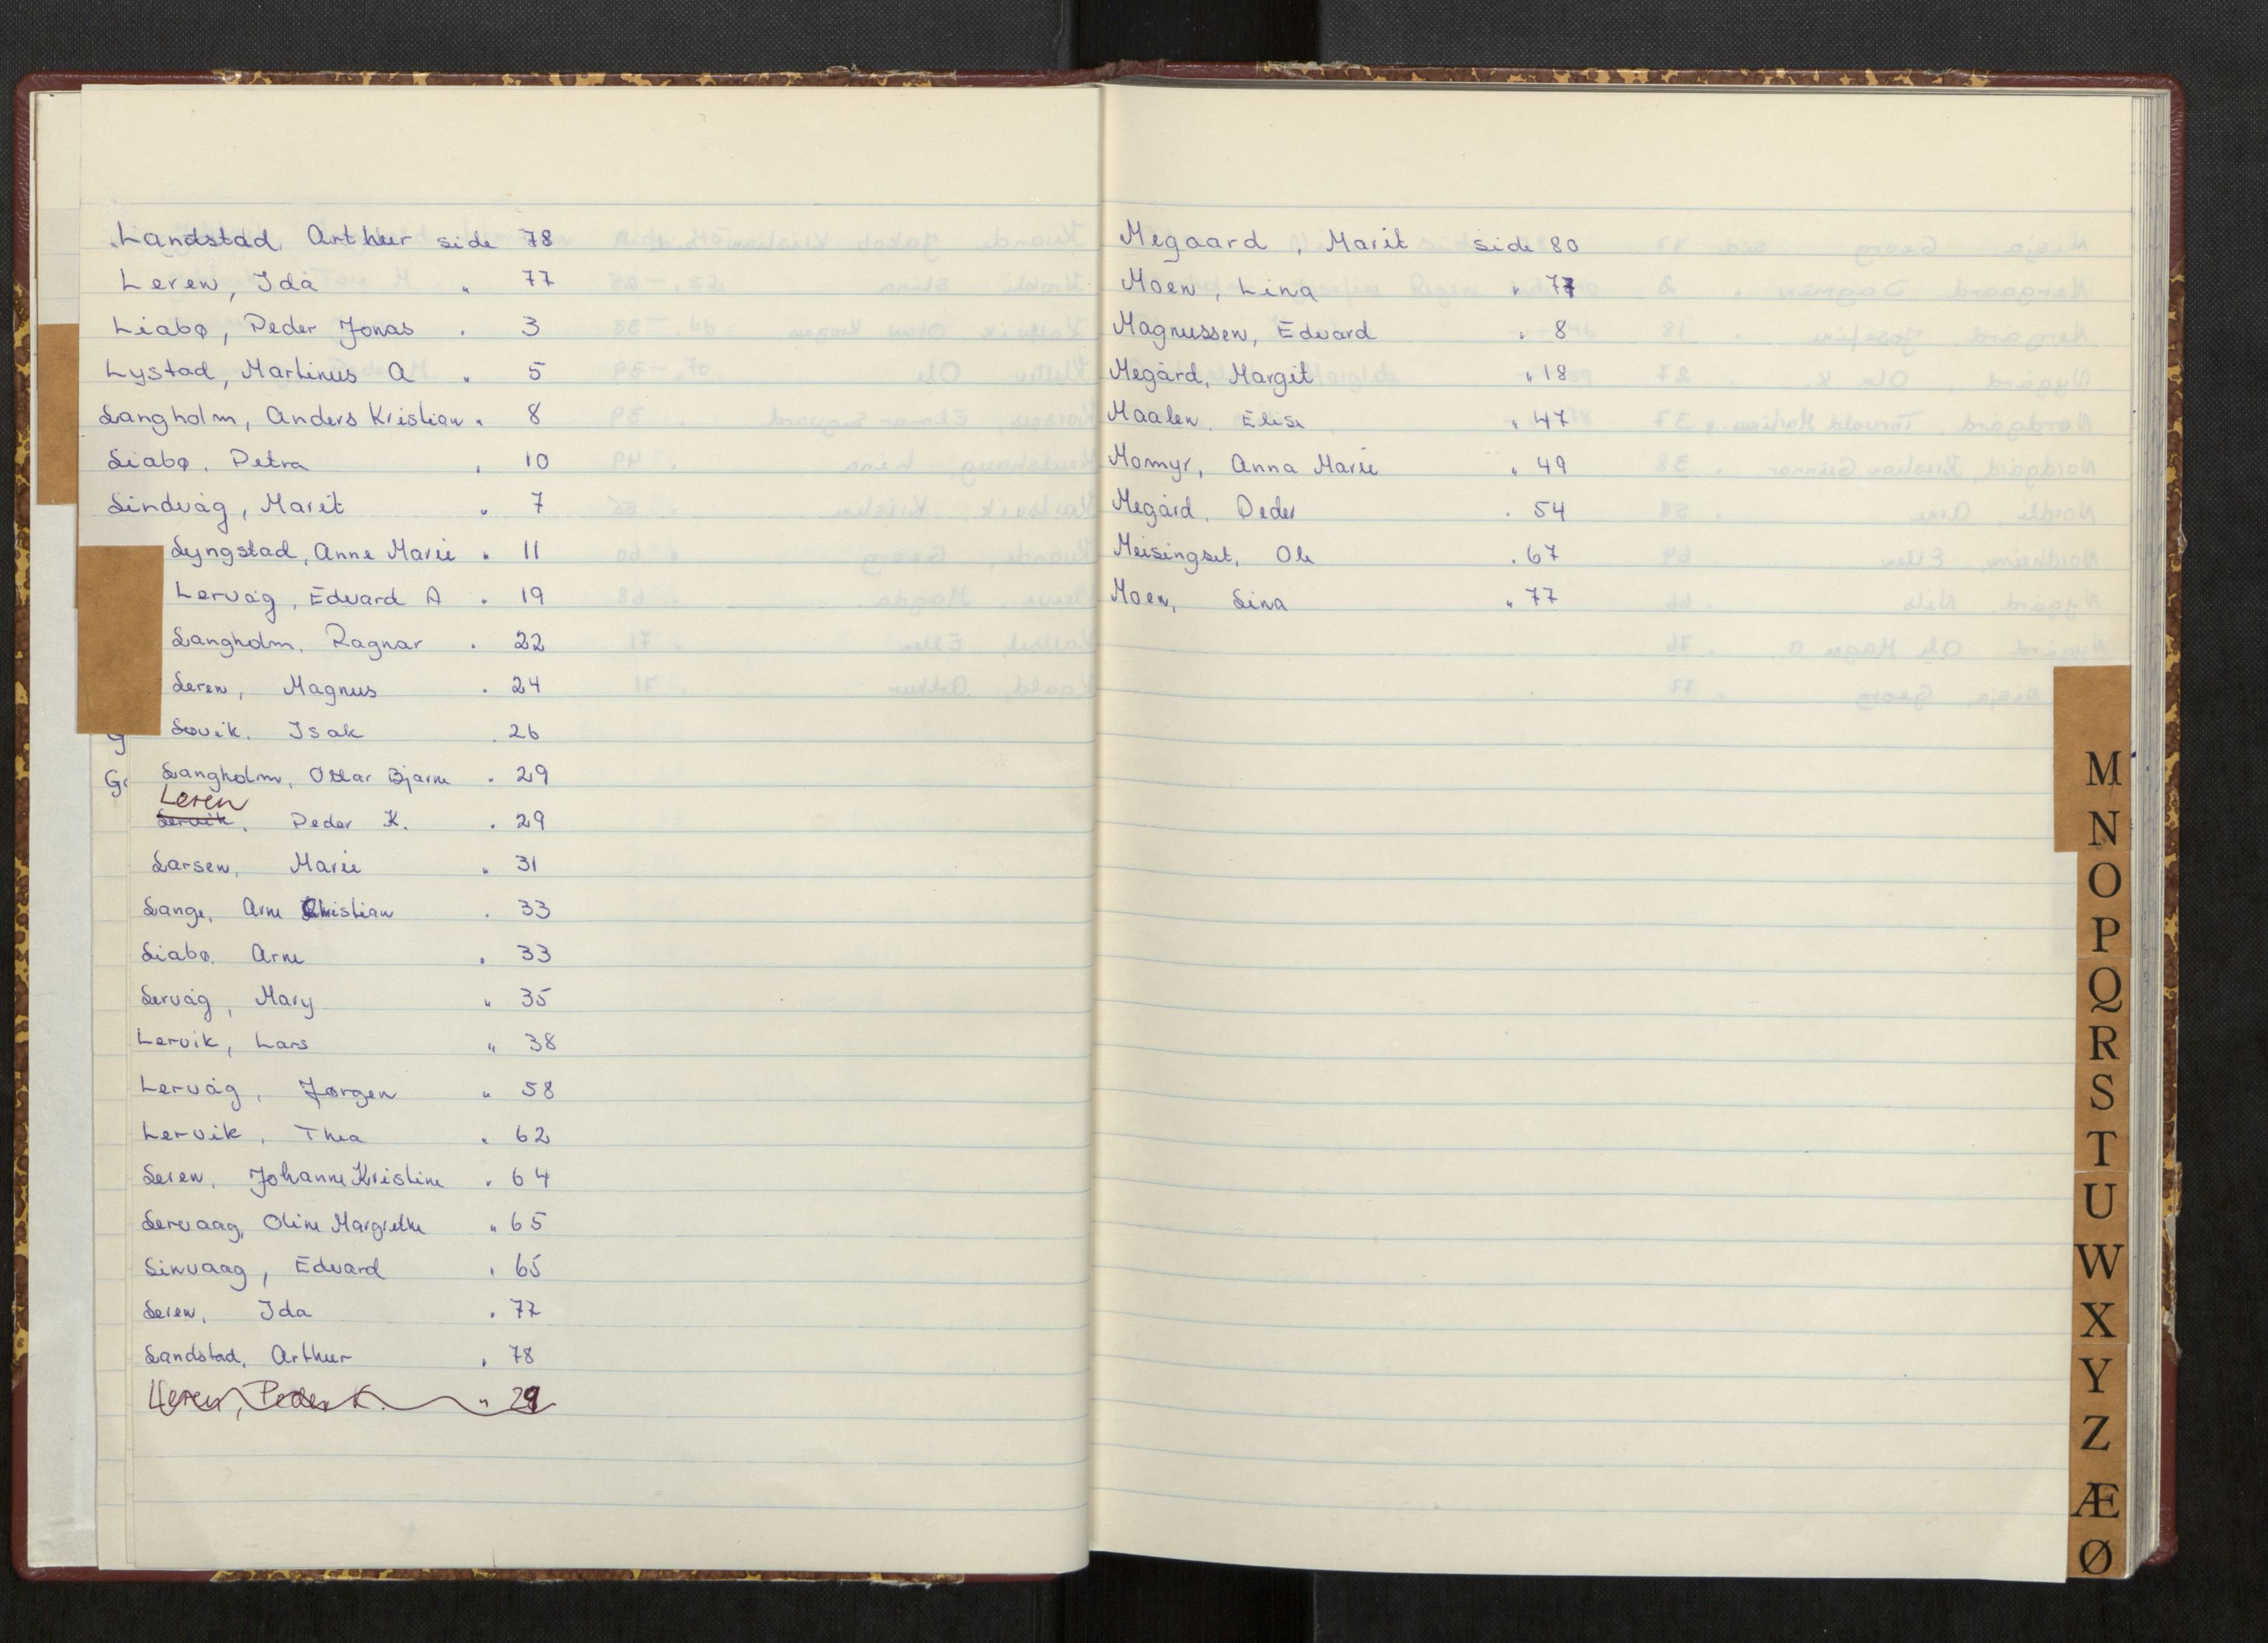 Landstad, Arthur side 78
Leren, Ida " 77
Liabø, Peder Jonas " 3
Lystad, Martinus A " 5
Langholm, Anders Kristian " 8
Liabø, Petra " 10
Lindvåg, Marit " 7
Lyngstad, Anne Marie " 11
Lervåg, Edvard A " 19
Langholm, Ragnar " 22
Leren, Magnus " 24
Løvik, Isak " 26
Langholm, Ottar Bjarne " 29
Leren
Lervik, Peder K. " 29
Larsen, Marie " 31
Lange, Arne Christian " 33
Liabø, Arne " 33
Lervåg, Mary " 35
Lervik, Lars " 38
Lervåg, Jørgen " 58
Lervik, Thea " 62
Leren, Johanne Kristine " 64
Lervaag, Oline Margrethe " 65
Linvaag, Edvard " 65
Leren, Ida " 77
Landstad, Arthur " 78
Leren, Peder K. " 29
Megaard, Marit side 80
Moen, Lina " 77
Magnussen, Edvard " 8
Megård, Margit " 18
Maalen, Elise " 47
Momyr, Anna Marie " 49
Megård, Peder " 54
Meisingset, Ole " 67
Moen, Lina " 77
M
N
O
P
Q
R
S
T
U
W
X
Y
Z
Æ
Ø